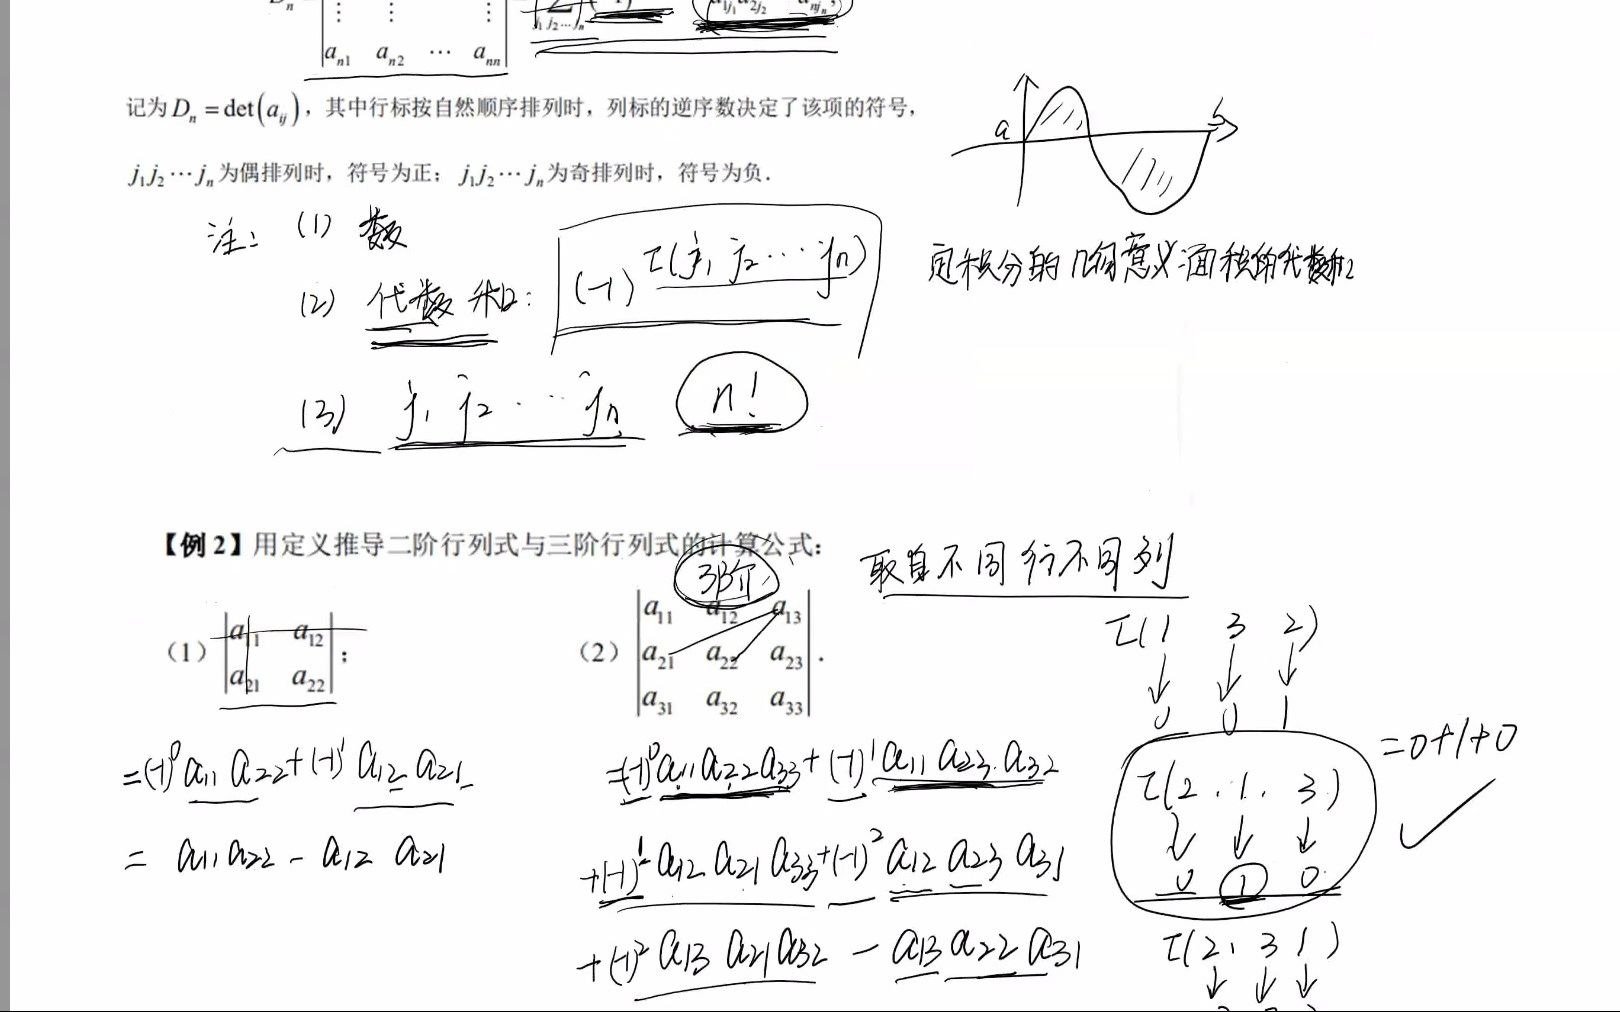 D_n = | ⋮ ⋮ ⋮ | = ∑ (-1) a_{1j_1} a_{2j_2} a_{nj_n},
j_1 j_2 ⋯ j_n
a_{n1} a_{n2} ⋯ a_{nn}
记为 D_n = det(a_{ij}),其中行标按自然顺序排列时,列标的逆序数决定了该项的符号,
j_1 j_2 ⋯ j_n 为偶排列时,符号为正;j_1 j_2 ⋯ j_n 为奇排列时,符号为负.
a b
注: (1) 数
(2) 代数和: (-1)^{τ(j_1 j_2 ⋯ j_n)}
定积分的几何意义 面积的代数和
(3) j_1 j_2 ⋯ j_n n!
【例 2】用定义推导二阶行列式与三阶行列式的计算公式:
取自不同行不同列
3阶
(1) | a_{11} a_{12} |
| a_{21} a_{22} | ;
(2) | a_{11} a_{12} a_{13} |
| a_{21} a_{22} a_{23} | .
| a_{31} a_{32} a_{33} |
= (-1)^0 a_{11} a_{22} + (-1)^1 a_{12} a_{21}
= a_{11} a_{22} - a_{12} a_{21}
= (-1)^0 a_{11} a_{22} a_{33} + (-1)^1 a_{11} a_{23} a_{32}
+ (-1)^1 a_{12} a_{21} a_{33} + (-1)^2 a_{12} a_{23} a_{31}
+ (-1)^2 a_{13} a_{21} a_{32} - a_{13} a_{22} a_{31}
τ(1 3 2)
↓ ↓ ↓
0 0 1
τ(2 . 1 . 3) = 0+1+0
↓ ↓ ↓
0 1 0
τ(2, 3 1)
↓ ↓ ↓